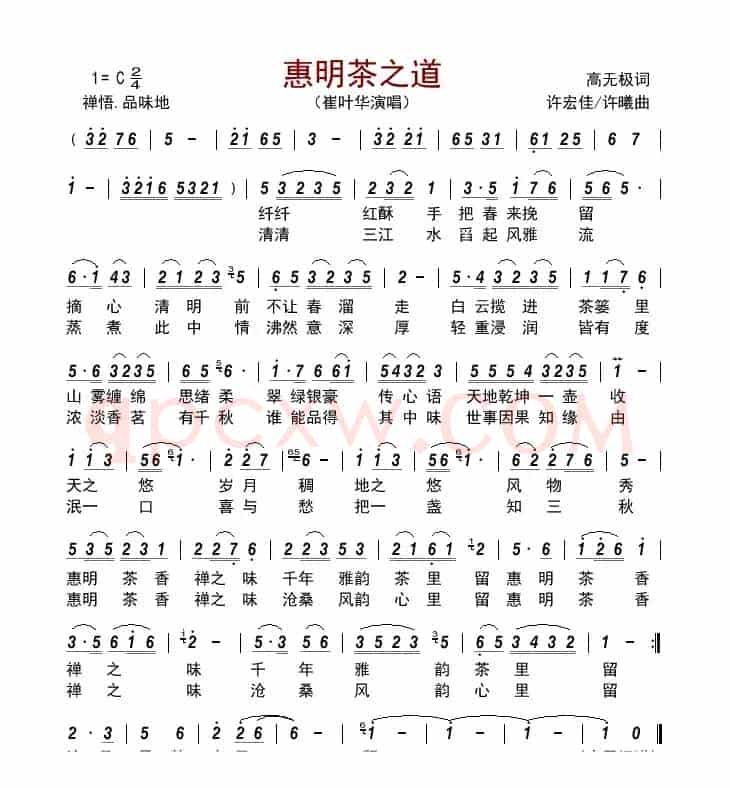 惠明茶之道
1= C 2/4
高无极词
禅悟.品味地
（崔叶华演唱）
许宏佳/许曦曲
( 3 2 7 6 | 5 - | 2 1 6 5 | 3 - | 3 2 2 1 | 6 5 3 5 | 6 1 2 5 | 6 7 |
1 - | 3 2 1 6 5 3 2 1 ) | 5 3 2 3 5 | 2 3 2 1 | 3 · 5 1 7 6 | 5 6 5 · |
纤纤 红酥 手 把 春 来挽 留
清清 三江 水 舀 起 风雅 流
6 · 1 4 3 | 2 1 2 3 3 5 | 5 3 2 3 5 | 2 - | 5 · 4 3 2 3 5 | 1 1 7 6 |
摘 心 清 明 前 不让 春 溜 走 白 云揽 进 茶篓 里
蒸 煮 此 中 情 沸然 意 深 厚 轻 重浸 润 皆有 度
5 · 6 3 2 3 5 | 6 5 5 6 · | 1 7 6 5 6 1 | 5 4 3 2 3 | 5 5 5 4 5 3 2 | 1 - |
山 雾缠 绵 思绪 柔 翠 绿银豪 传 心语 天地乾坤 一 壶 收
浓 淡香 茗 有千 秋 谁 能品得 其 中味 世事因果 知 缘 由
qpcxw.com
1 1 3 | 5 6 6 1 · | 2 2 7 | 6 5 6 · | 1 1 3 | 5 6 6 1 · | 6 2 2 7 6 | 5 - |
天之 悠 岁 月 稠 地之 悠 风 物 秀
泯一 口 喜 与 愁 把一 盏 知 三 秋
5 3 5 2 3 1 | 2 2 7 6 | 5 3 5 2 3 | 2 1 6 1 1 2 | 5 5 6 | 1 2 6 1 |
惠明 茶 香 禅之 味 千年 雅韵 茶 里 留 惠 明 茶 香
惠明 茶 香 禅之 味 沧桑 风韵 心 里 留 惠 明 茶 香
3 · 5 6 1 6 | 1 2 · | 5 3 5 2 3 1 | 3 5 2 3 3 5 | 6 5 3 4 3 2 | 1 - :||
禅 之 味 千 年 雅 韵 茶 里 留
禅 之 味 沧 桑 风 韵 心 里 留